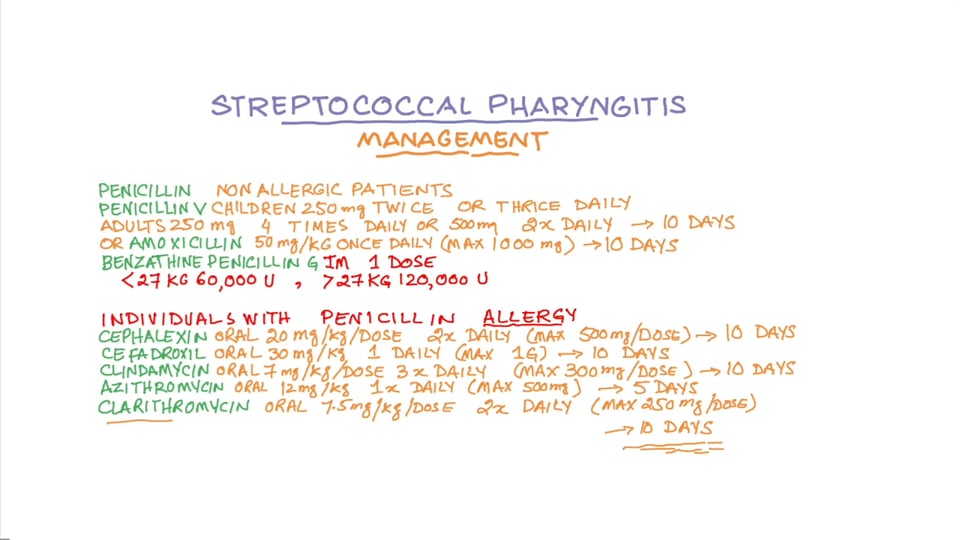 STREPTOCOCCAL PHARYNGITIS
MANAGEMENT
PENICILLIN NON ALLERGIC PATIENTS
PENICILLIN V CHILDREN 250 mg TWICE OR THRICE DAILY
ADULTS 250 mg 4 TIMES DAILY OR 500 mg 2x DAILY → 10 DAYS
OR AMOXICILLIN 50 mg/KG ONCE DAILY (MAX 1000 mg) → 10 DAYS
BENZATHINE PENICILLIN G IM 1 DOSE
<27 KG 60,000 U , >27 KG 120,000 U
INDIVIDUALS WITH PENICILLIN ALLERGY
CEPHALEXIN ORAL 20 mg/kg/DOSE 2x DAILY (MAX 500 mg/DOSE) → 10 DAYS
CEFADROXIL ORAL 30 mg/kg 1 DAILY (MAX 1G) → 10 DAYS
CLINDAMYCIN ORAL 7 mg/kg/DOSE 3x DAILY (MAX 300 mg/DOSE) → 10 DAYS
AZITHROMYCIN ORAL 12 mg/kg 1x DAILY (MAX 500 mg) → 5 DAYS
CLARITHROMYCIN ORAL 7.5 mg/kg/DOSE 2x DAILY (MAX 250 mg/DOSE)
→ 10 DAYS